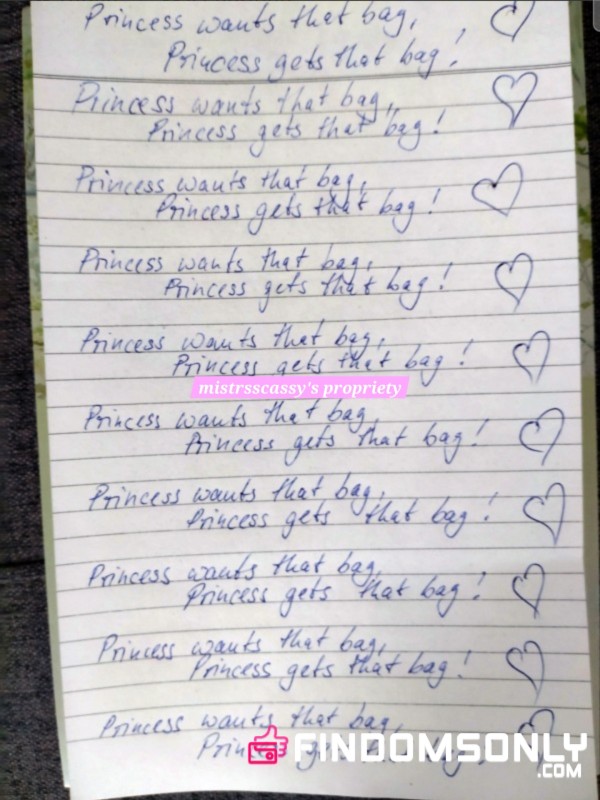 Princess wants that bag,
Princess gets that bag!
Princess wants that bag,
Princess gets that bag!
Princess wants that bag,
Princess gets that bag!
Princess wants that bag,
Princess gets that bag!
Princess wants that bag,
Princess gets that bag!
mistrsscassy's propriety
Princess wants that bag,
Princess gets that bag!
Princess wants that bag,
Princess gets that bag!
Princess wants that bag,
Princess gets that bag!
Princess wants that bag,
Princess gets that bag!
Princess wants that bag,
Princess gets that bag!
FINDOMSONLY
.COM